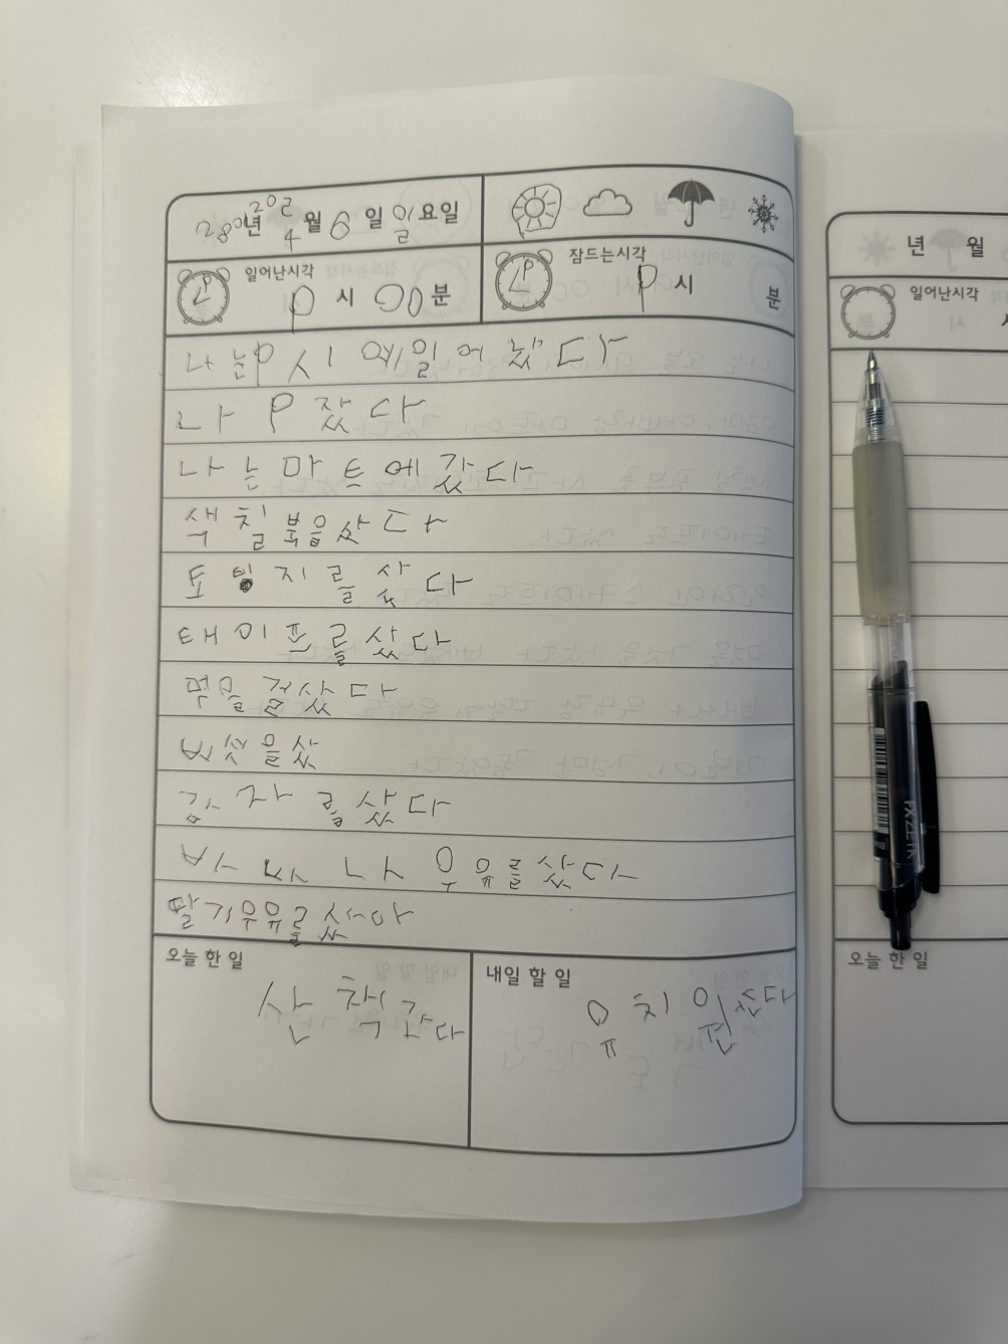 202
년 4월 6일 일요일
일어난시각
시 00분
잠드는시각
시 분
나는 9시 에일어났다
나 9 잤다
나는마트에갔다
색칠북읍샀다
포빙지를샀다
테이프를샀다
먹을걸샀다
버섯을샀
감자를샀다
바나나우유를샀다
딸기우유를샀
오늘 한 일
산책간다
내일 할 일
유치원
년 월
일어난시각
오늘 한 일
FX ZETA